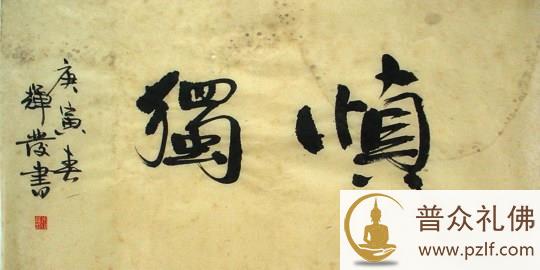 慎獨
庚寅春
輝發書
普众礼佛
www.pzlf.com